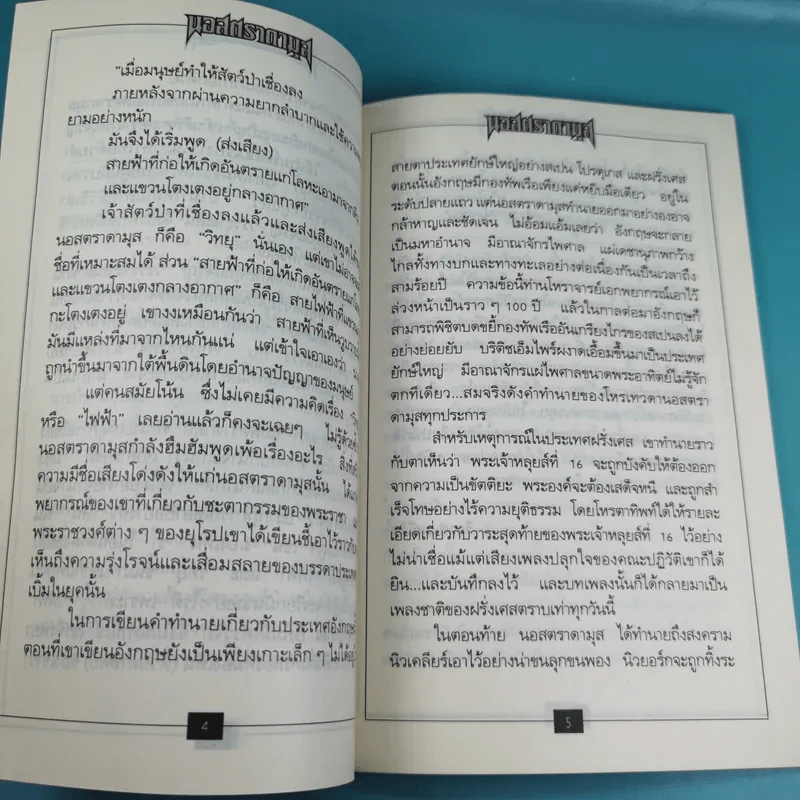 นอสตราดามุส
"เมื่อมนุษย์ทำให้สัตว์ป่าเชื่องลง
ภายหลังจากผ่านความยากลำบากและใช้ความ
ยามอย่างหนัก
มันจึงได้เริ่มพูด (ส่งเสียง)
สายฟ้าที่ก่อให้เกิดอันตรายแก่โลหะเอามาจาก
และแขวนโตงเตงอยู่กลางอากาศ"
เจ้าสัตว์ป่าที่เชื่องลงแล้วและส่งเสียงพูดได้
นอสตราดามุส ก็คือ "วิทยุ" นั่นเอง แต่เขาไม่
ชื่อที่เหมาะสมได้ ส่วน "สายฟ้าที่ก่อให้เกิดอันตรายแก่
และแขวนโตงเตงกลางอากาศ" ก็คือ สายไฟฟ้าที่
กะโตงเตงอยู่ เขางงเหมือนกันว่า สายฟ้าที่เห็น
มันมีแหล่งที่มาจากไหนกันแน่ แต่เข้าใจเอาเองว่า
ถูกนำขึ้นมาจากใต้พื้นดินโดยอำนาจปัญญาของมนุษย์
แต่คนสมัยโน้น ซึ่งไม่เคยมีความคิดเรื่อง
หรือ "ไฟฟ้า" เลยอ่านแล้วก็คงจะเฉยๆ ไม่รู้ด้วย
นอสตราดามุสกำลังฮึมฮัมพูดเพ้อเรื่องอะไร สิ่งที่
ความมีชื่อเสียงโด่งดังให้แก่นอสตราดามุสนั้น ได้แก่
พยากรณ์ของเขาที่เกี่ยวกับชะตากรรมของพระราชา
พระราชวงศ์ต่าง ๆ ของยุโรปเขาได้เขียนชี้เอาไว้ราวกับ
เห็นถึงความรุ่งโรจน์และเสื่อมสลายของบรรดาประเทศ
เบิ้มในยุคนั้น
ในการเขียนคำทำนายเกี่ยวกับประเทศอังกฤษ
ตอนที่เขาเขียนอังกฤษยังเป็นเพียงเกาะเล็ก ๆ ไม่ได้อยู่
4
นอสตราดามุส
สายตาประเทศยักษ์ใหญ่อย่างสเปน โปรตุเกส และฝรั่งเศส
ตอนนั้นอังกฤษมีกองทัพเรือเพียงแค่หยิบมือเดียว อยู่ใน
ระดับปลายแถว แต่นอสตราดามุสทำนายออกมาอย่างองอาจ
กล้าหาญและชัดเจน ไม่อ้อมแอ้มเลยว่า อังกฤษจะกลาย
เป็นมหาอำนาจ มีอาณาจักรไพศาล แผ่เดชานุภาพกว้าง
ไกลทั้งทางบกและทางทะเลอย่างต่อเนื่องกันเป็นเวลาถึง
สามร้อยปี ความข้อนี้ท่านโหราจารย์เอกพยากรณ์เอาไว้
ล่วงหน้าเป็นราว ๆ 100 ปี แล้วในกาลต่อมาอังกฤษก็
สามารถพิชิตบดขยี้กองทัพเรืออันเกรียงไกรของสเปนลงได้
อย่างย่อยยับ บริติชเอ็มไพร์ผงาดเอื้อมขึ้นมาเป็นประเทศ
ยักษ์ใหญ่ มีอาณาจักรแผ่ไพศาลขนาดพระอาทิตย์ไม่รู้จัก
ตกทีเดียว...สมจริงดังคำทำนายของโหรเทวดานอสตรา
ดามุสทุกประการ
สำหรับเหตุการณ์ในประเทศฝรั่งเศส เขาทำนายราว
กับตาเห็นว่า พระเจ้าหลุยส์ที่ 16 จะถูกบังคับให้ต้องออก
จากความเป็นขัตติยะ พระองค์จะต้องเสด็จหนี และถูกสำ
เร็จโทษอย่างไร้ความยุติธรรม โดยโหรตาทิพท์ได้ให้รายละ
เอียดเกี่ยวกับวาระสุดท้ายของพระเจ้าหลุยส์ที่ 16 ไว้อย่าง
ไม่น่าเชื่อแม้แต่เสียงเพลงปลุกใจของคณะปฏิวัติเขาก็ได้
ยิน...และบันทึกลงไว้ และบทเพลงนั้นก็ได้กลายมาเป็น
เพลงชาติของฝรั่งเศสตราบเท่าทุกวันนี้
ในตอนท้าย นอสตราดามุส ได้ทำนายถึงสงคราม
นิวเคลียร์เอาไว้อย่างน่าขนลุกขนพอง นิวยอร์กจะถูกทิ้งระ
5